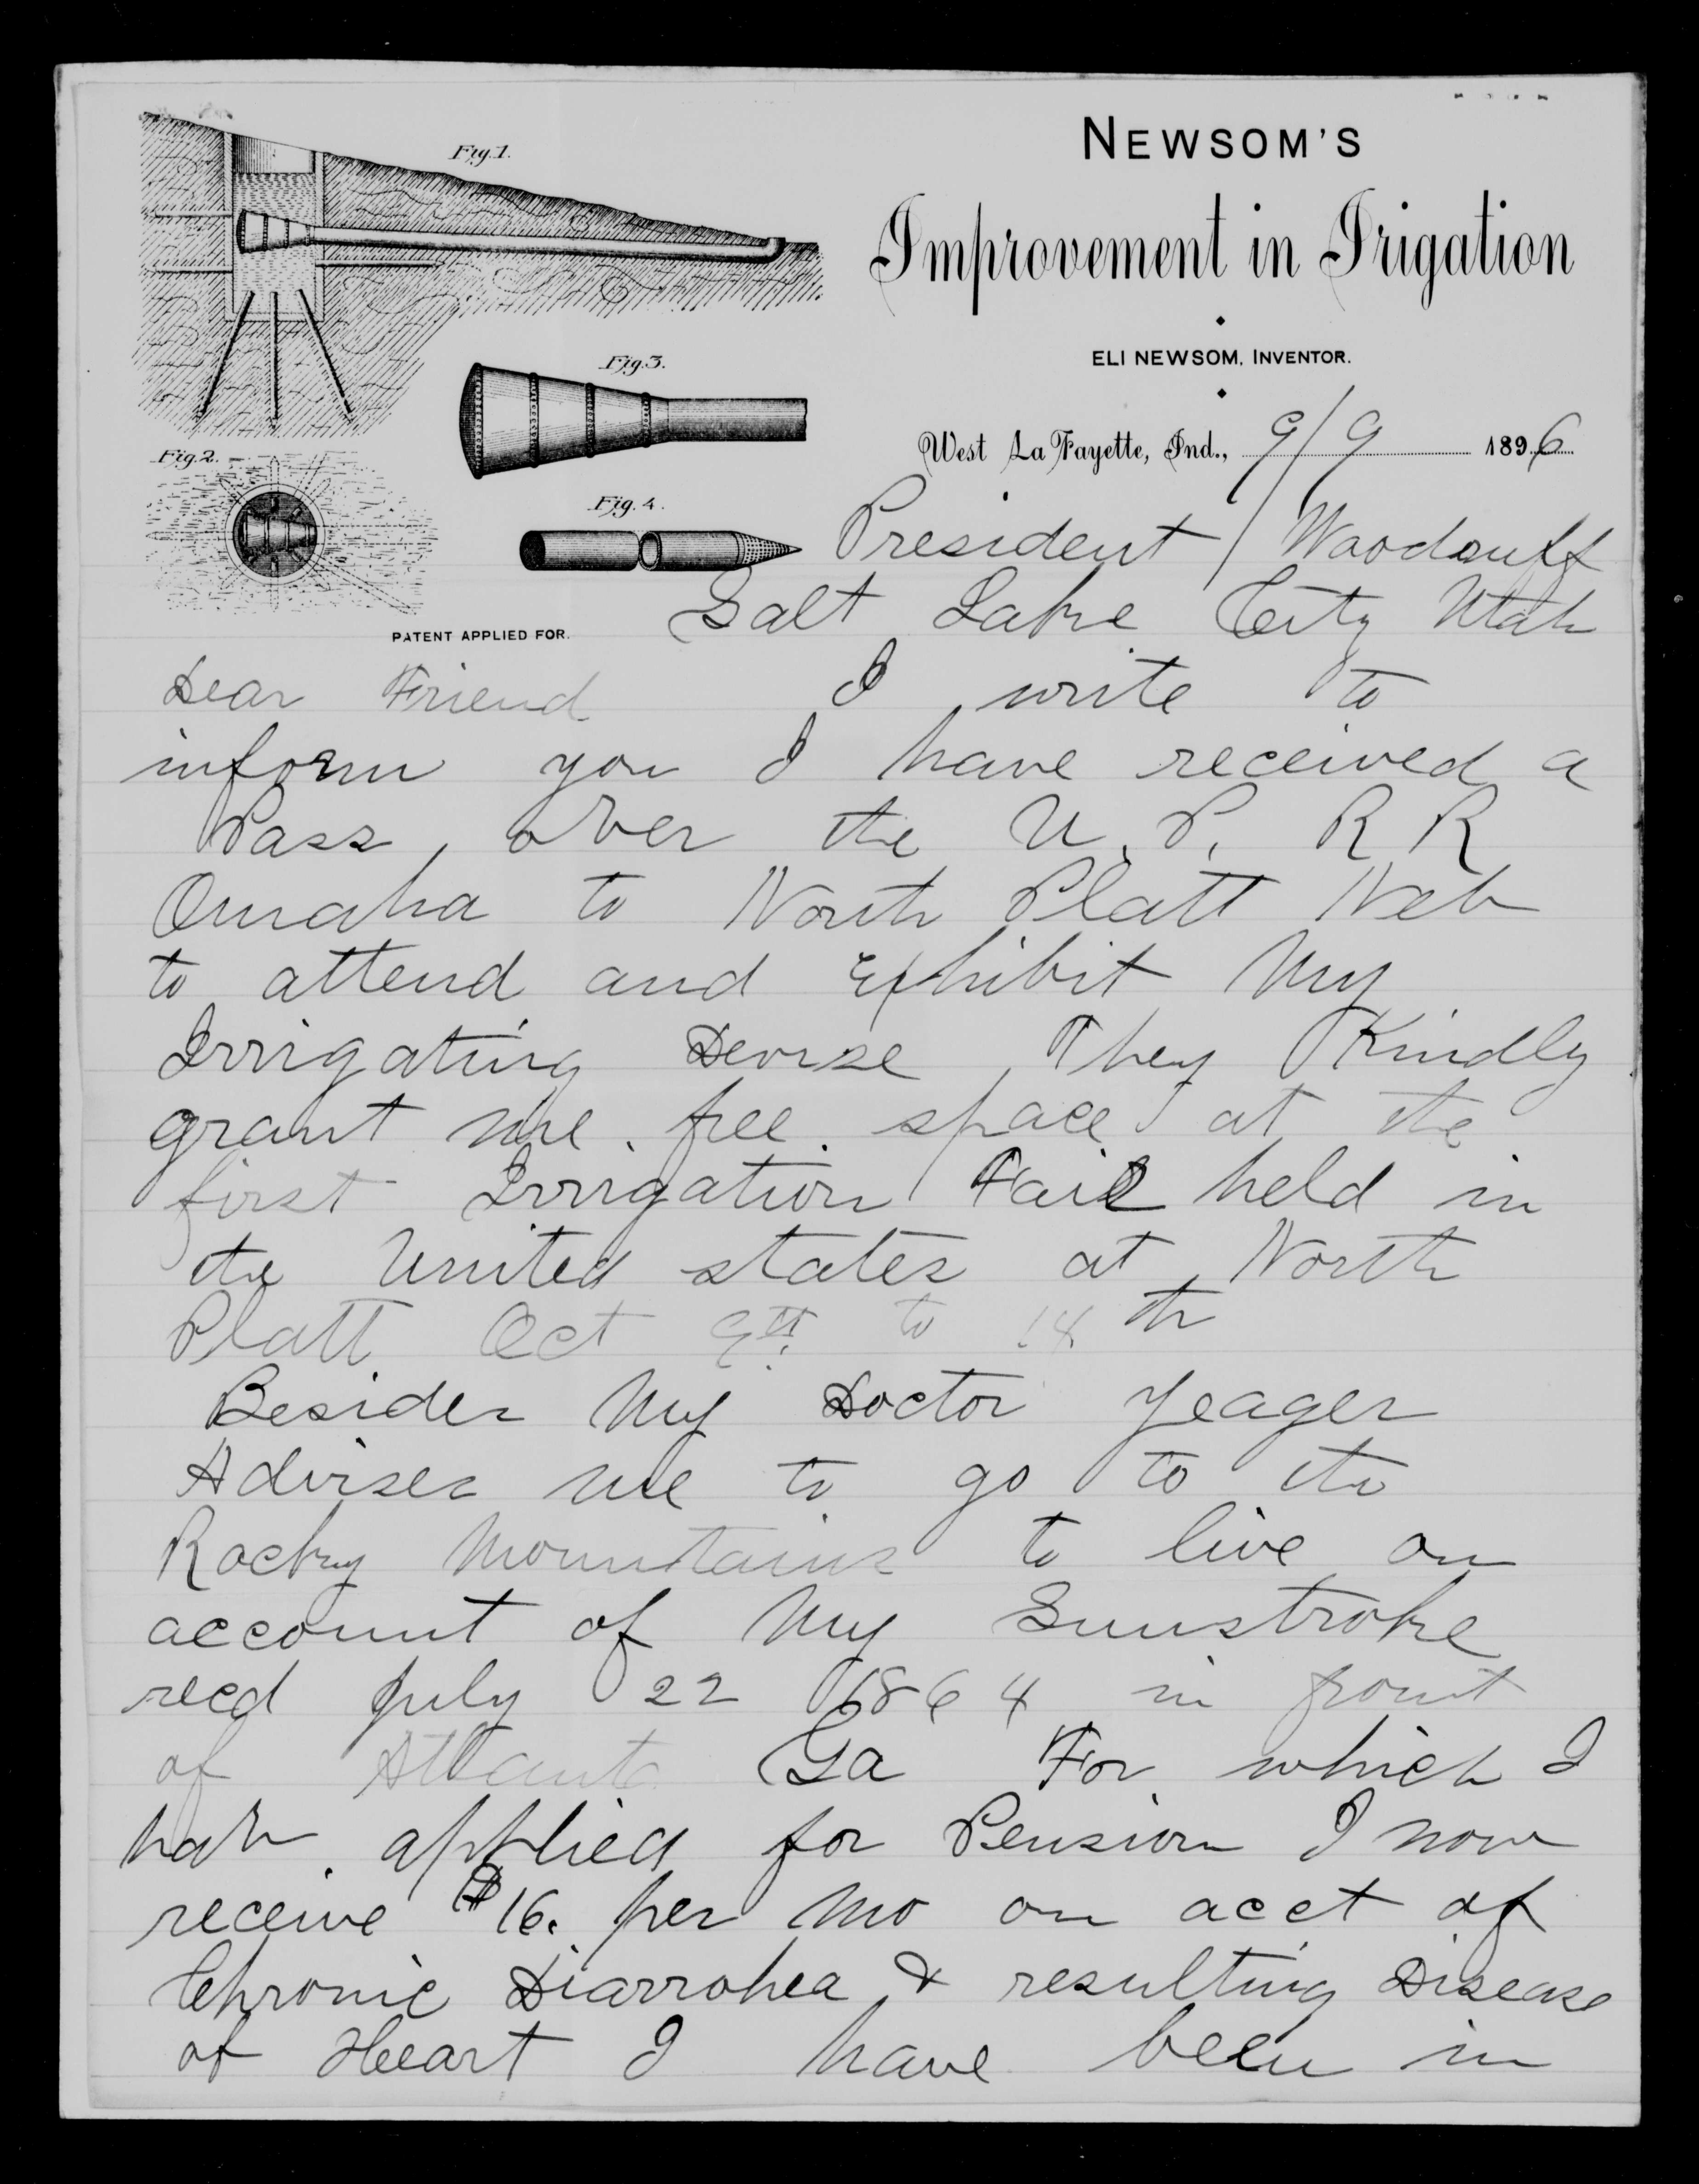 Fig.1.
NEWSOM'S
Improvement in Irigation
ELI NEWSOM, INVENTOR.
Fig.3.
Fig.2.
West La Fayette, Ind., 9/9 1896
Fig. 4.
PATENT APPLIED FOR.
President Woodruff
Salt Lake City Utah
Dear Friend I write to
inform you I have received a
Pass, over the U. P. R R
Omaha to North Platt Neb
to attend and Exhibit My
Irrigating Devise They Kindly
grant me free space at the
first Irrigation Fair held in
the United states at North
Platt Oct 9th to 14th
Besides My Doctor Yeager
Advises me to go to the
Rocky Mountains to live on
account of My Sunstroke
recd July 22 1864 in front
of Atlanta Ga For which I
hav applied for Pension I now
receive $16. per Mo on acct of
Chronic Diarrohea & resulting Disease
of Heart I have been in